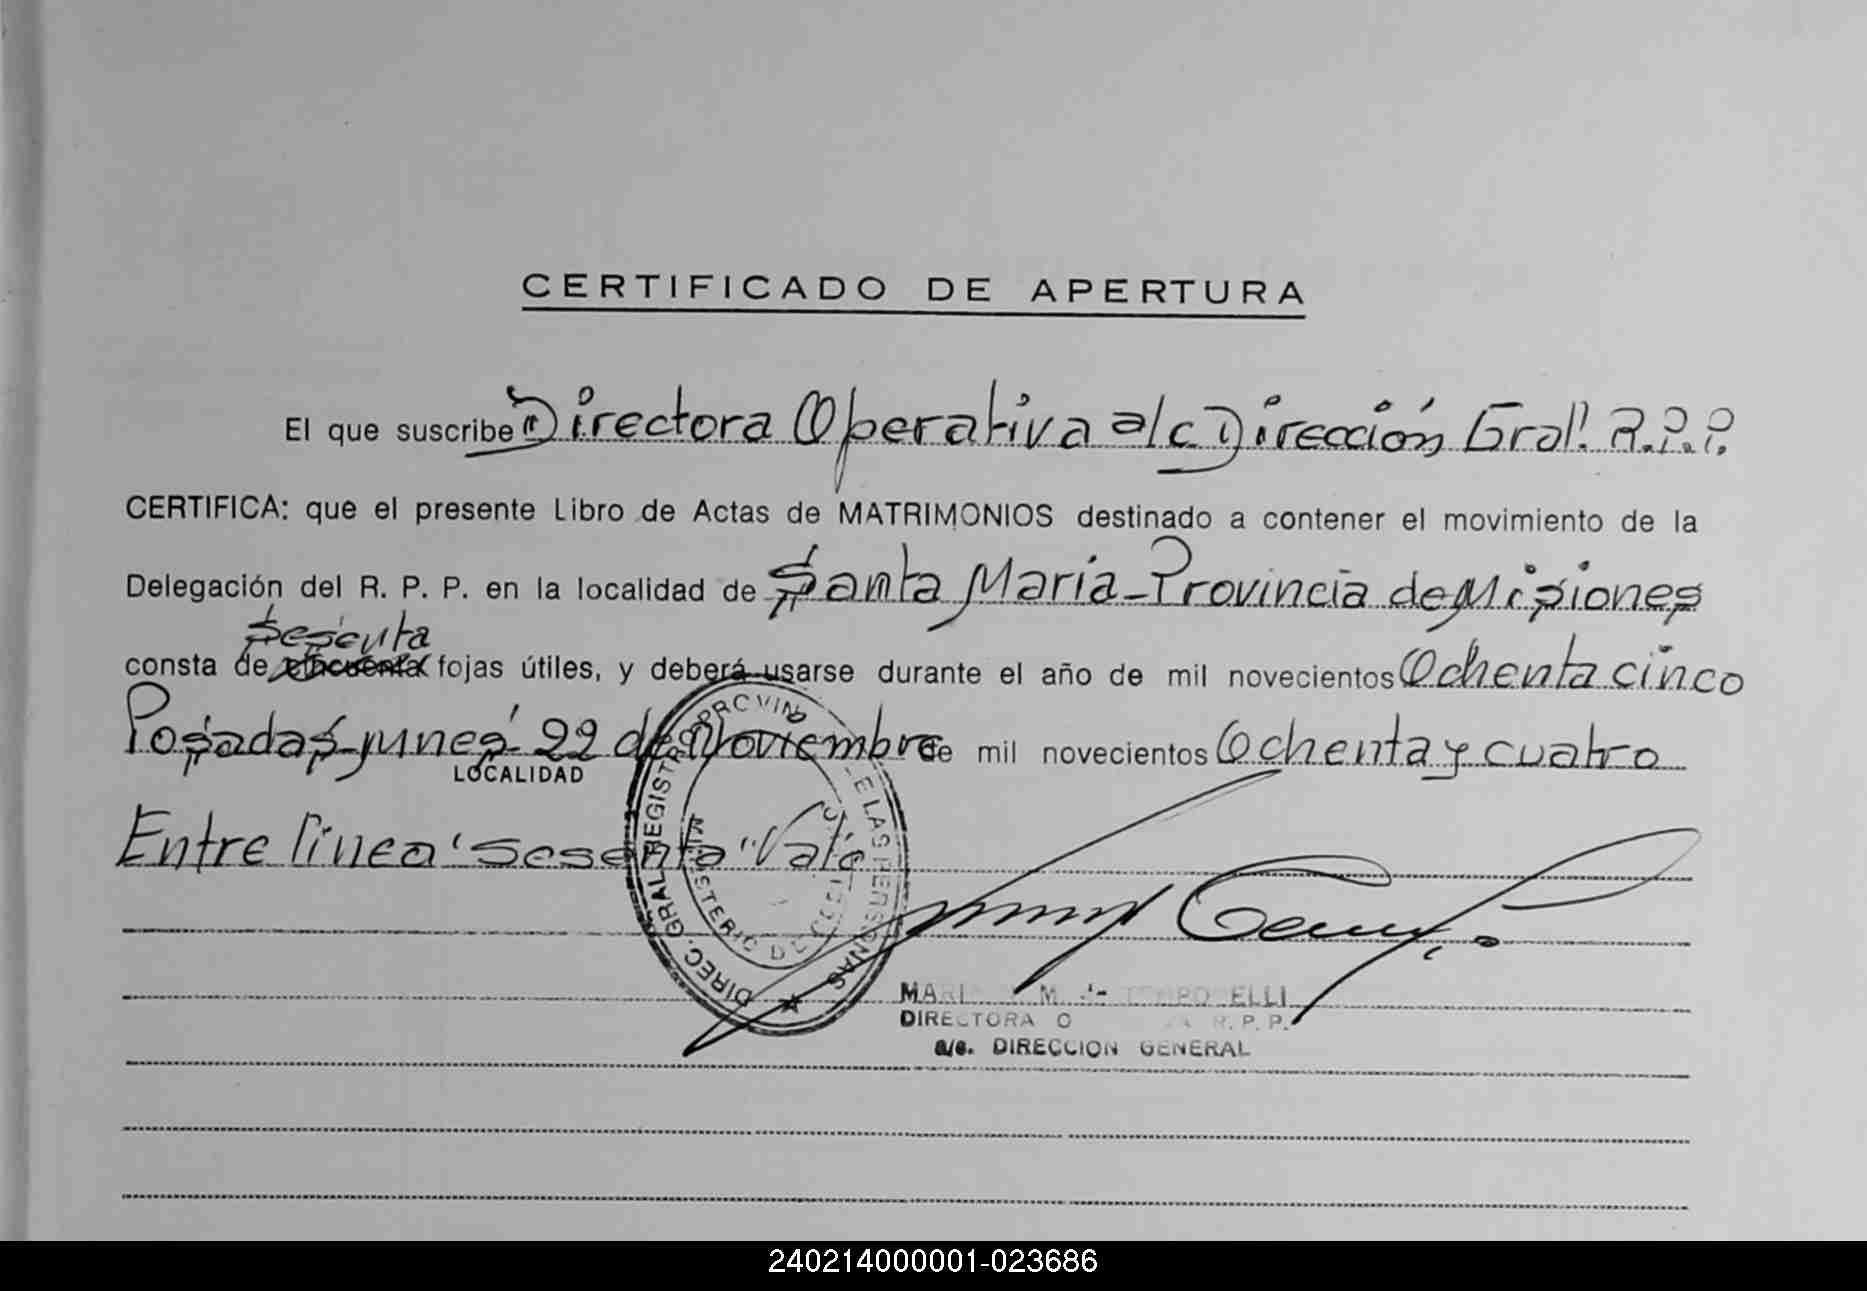 CERTIFICADO DE APERTURA
El que suscribe Directora Operativa a/c Dirección Gral. R.P.P.
CERTIFICA: que el presente Libro de Actas de MATRIMONIOS destinado a contener el movimiento de la
Delegación del R. P. P. en la localidad de Santa María - Provincia de Misiones
Sesenta
consta de cincuenta fojas útiles, y deberá usarse durante el año de mil novecientos Ochenta cinco
Posadas, 22 de Noviembre de mil novecientos Ochenta y cuatro
LOCALIDAD
Entre línea "sesenta" Vale
DIREC. GRAL. REGISTRO PROVIN E LAS PERSONAS
MINISTERIO DE
DIRECTORA R. P. P.
a/c. DIRECCION GENERAL
240214000001-023686